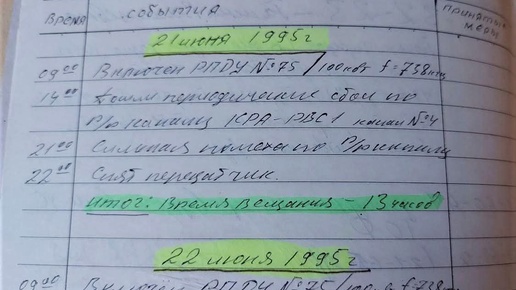 Время события принятые меры
21 июня 1995г
09⁰⁰ Включен РПДУ №75 / 100квт f=738кгц
14⁰⁰ Пошли периодические сбои по
р/р каналу КРА-РВС1 канал №4
21⁰⁰ Сильная помеха по р/р каналу
22⁰⁰ Снят передатчик.
Итог: Время вещания - 13 часов
22 июня 1995г
09⁰⁰ Включен РПДУ №75/100 f=738